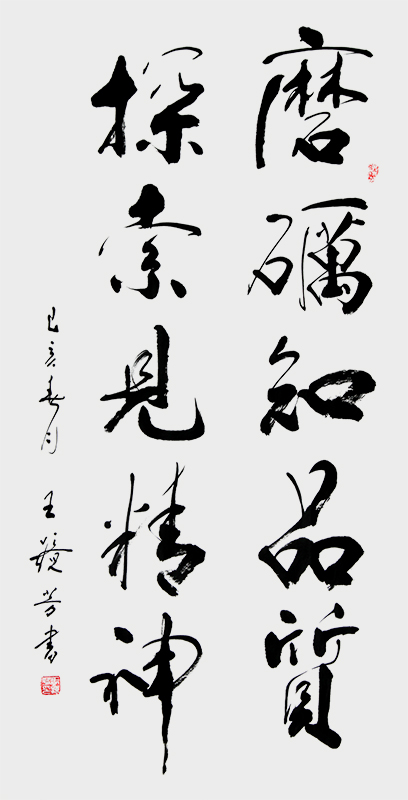 磨礪知品質
探索見精神
己亥春月 王芳書